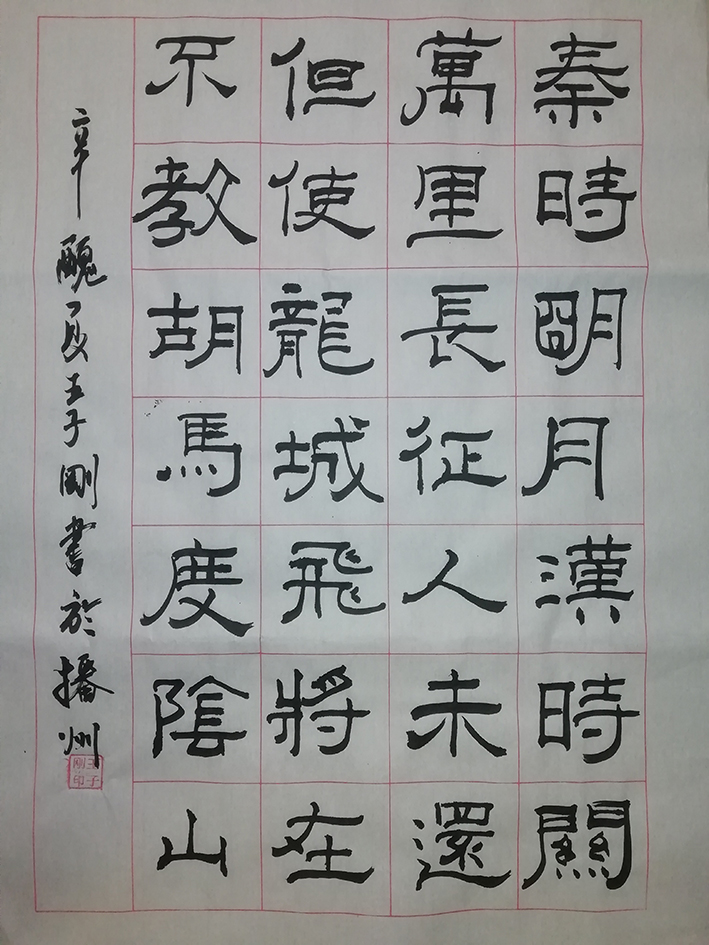 秦時明月漢時關
萬里長征人未還
但使龍城飛將在
不教胡馬度陰山
辛醜夏王子剛書於播州
王子剛印